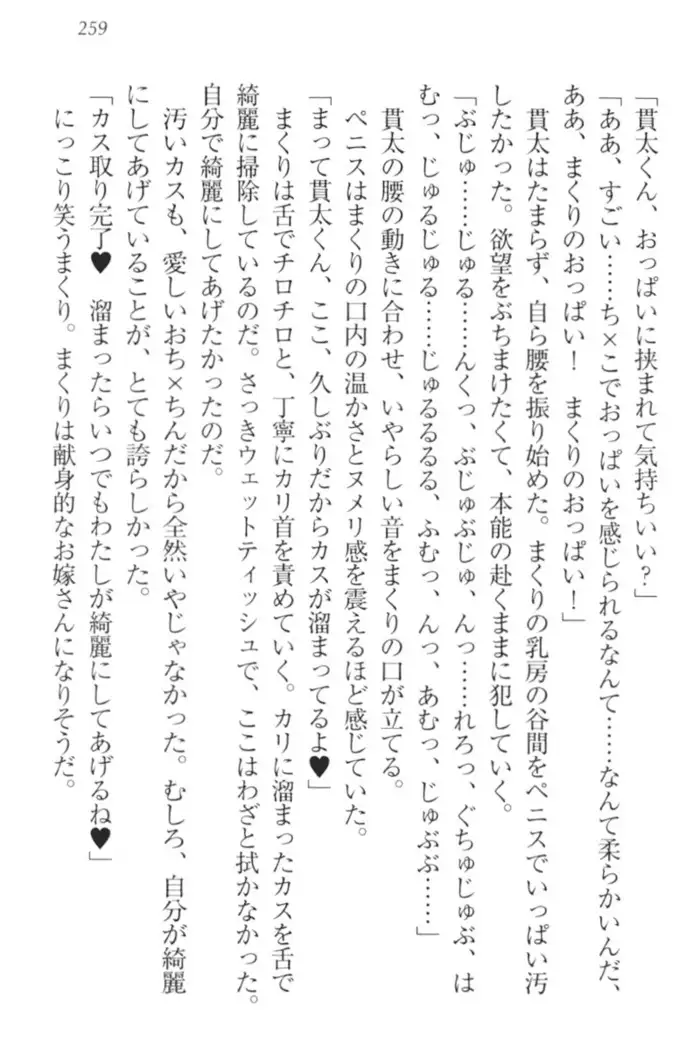 259
「貫太くん、おっぱいに挟まれて気持ちいい？」
「ああ、すごい……ち×こでおっぱいを感じられるなんて……なんて柔らかいんだ、
ああ、まくりのおっぱい！　まくりのおっぱい！」
　貫太はたまらず、自ら腰を振り始めた。まくりの乳房の谷間をペニスでいっぱい汚
したかった。欲望をぶちまけたくて、本能の赴くままに犯していく。
「ぶじゅ……じゅる……んくっ、ぶじゅぶじゅ、んっ……れろっ、ぐちゅじゅぶ、は
むっ、じゅるじゅる……じゅるるるる、ふむっ、んっ、あむっ、じゅぶぶ……」
　貫太の腰の動きに合わせ、いやらしい音をまくりの口が立てる。
　ペニスはまくりの口内の温かさとヌメリ感を震えるほど感じていた。
「まって貫太くん、ここ、久しぶりだからカスが溜まってるよ♥」
　まくりは舌でチロチロと、丁寧にカリ首を責めていく。カリに溜まったカスを舌で
綺麗に掃除しているのだ。さっきウェットティッシュで、ここはわざと拭かなかった。
自分で綺麗にしてあげたかったのだ。
　汚いカスも、愛しいおち×ちんだから全然いやじゃなかった。むしろ、自分が綺麗
にしてあげていることが、とても誇らしかった。
「カス取り完了♥　溜まったらいつでもわたしが綺麗にしてあげるね♥」
　にっこり笑うまくり。まくりは献身的なお嫁さんになりそうだ。